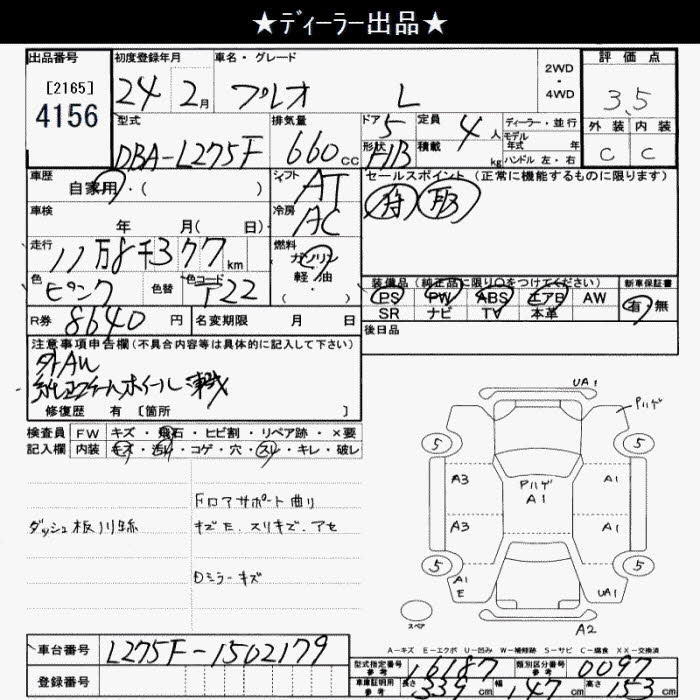 ★ディーラー出品★
出品番号
[2165]
4156
初度登録年月
24 2月
車名・グレード
プレオ L
2WD
・
4WD
評価点
3.5
外装 内装
C C
型式
DBA-L275F
排気量
660 cc
ドア 5
形状 H/B
定員 4 人
積載 kg
ディーラー・並行
モデル
年式 年
ハンドル 左・右
車歴
自家用・( )
シフト
AT
セールスポイント (正常に機能するものに限ります)
車検
年 月( 日)
冷房
AC
走行
11万8千377 km
燃料
ガソリン
軽油
・( )
色
ピンク
色替
色コード
T22
装備品 (純正品に限り○をつけてください)
PS PW ABS エアB AW
SR ナビ TV 本革
新車保証書
有 無
R券 8640 円
名変期限 月 日
後日品
注意事項申告欄 (不具合内容等は具体的に記入して下さい)
外AW
修復歴 有 [箇所 ]
検査員 FW キズ・飛石・ヒビ割・リペア跡・×要
記入欄 内装 キズ・汚れ・コゲ・穴・スレ・キレ・破レ
Fロアサポート曲り
ダッシュ板
キズE、スリキズ、アセ
Dミラーキズ
UA1
Pハゲ
5 5
A3 Pハゲ A1
A1
A3 A1
5 5
A1
E UA1
スペア
A2
A-キズ E-エクボ U-凹み W-補修跡 S-サビ C-腐食 XX-交換済
車台番号 L275F-1502179
登録番号
型式指定番号
参考
16187
類別区分番号
参考
0097
車庫証明用
参考
長さ 339 cm 幅 147 cm 高さ 153 cm